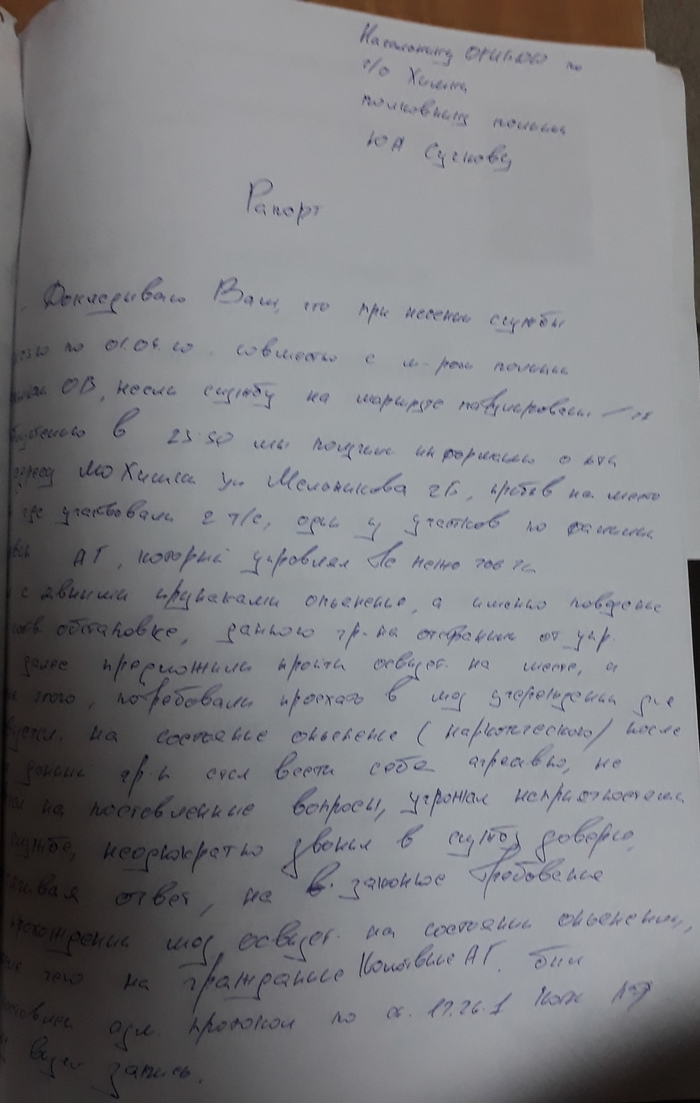 Начальнику по
г/о Химки
полковнику полиции
ЮА Сучкову
Рапорт
Докладываю Вам, что при несении службы
по 01.09.20. совместно с м-ром полиции
ОВ, несли службу на маршруте патрулирован.
в 23:50 мы получили информацию о дтп
МО Химки ул Мельникова 2Б, прибыв на место
где участвовали 2 т/с, один из по фамилии
АГ, который управлял
с явными признаками опьянение, а именно поведение
обстановке, данного гр-на отстранили от упр.
далее предложили пройти освидет. на месте, и
этого, потребовали проехать в мед учереждении для
на состояние опьянение (наркотического) после
данный гр-н стал вести себе агресивно, не
на поставленные вопросы, угрожал неприятностями
службе, неоднократно звонил в службу доверия,
ответ, на в. законное требование
прохождении мед освидет. на состояния опьянения,
чего на гражданине АГ. был
адм. протокол по ст. 12.26.1 КоАП РФ
запись.